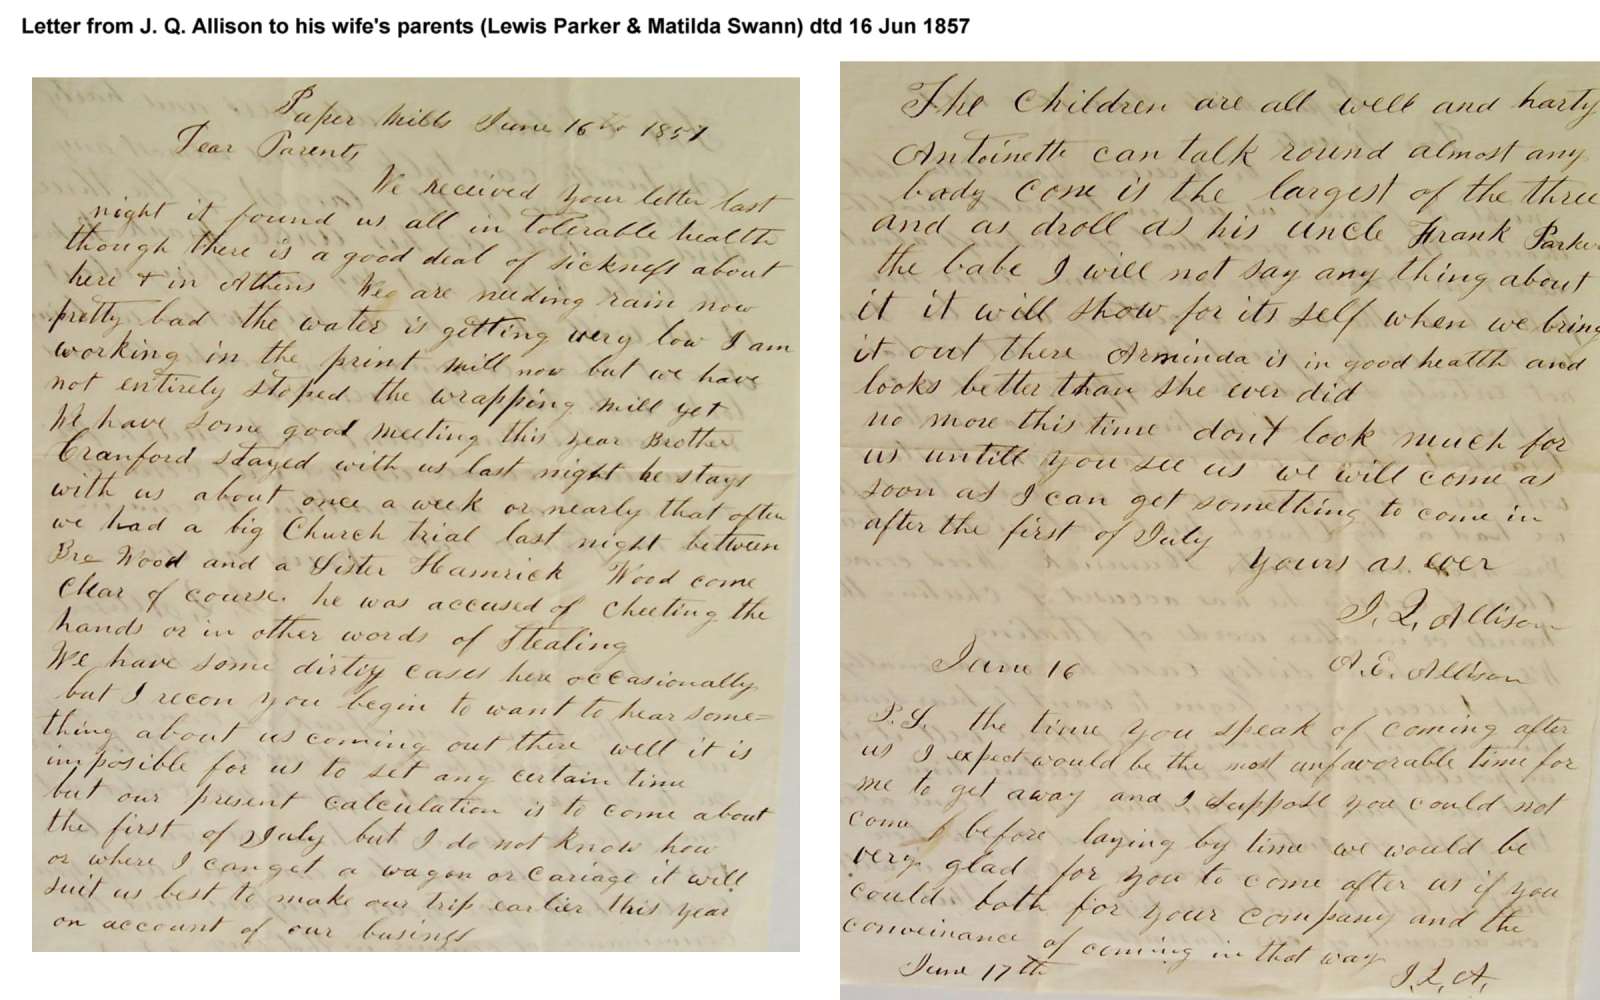 Letter from J. Q. Allison to his wife's parents (Lewis Parker & Matilda Swann) dtd 16 Jun 1857
Paper Mills June 16th 1857
Dear Parents
We received your letter last
night it found us all in tolerable health
though there is a good deal of sickness about
here & in Athens We are needing rain now
pretty bad the water is getting very low I am
working in the print mill now but we have
not entirely stoped the wrapping mill yet
We have some good meeting this year Brother
Cranford stayed with us last night he stays
with us about once a week or nearly that often
we had a big Church trial last night between
Bro Wood and a Sister Hamrick Wood come
Clear of course. he was accused of Cheeting the
hands or in other words of Stealing
We have some dirtiy cases here occasionally
but I recon you begin to want to hear some=
thing about us coming out there well it is
imposible for us to set any certain time
but our present calculation is to come about
the first of July but I do not know how
or where I can get a wagon or Cariage it will
suit us best to make our trip earlier this year
on account of our business
The Children are all well and harty
Antoinette can talk round almost any
body is the largest of the three
and as droll as his uncle Frank Parker
the babe I will not say any thing about
it it will show for its self when we bring
it out there Arminda is in good health and
looks better than she ever did
no more this time dont look much for
us untill you see us we will come as
soon as I can get something to come in
after the first of July
yours as ever
J. Q. Allison
June 16
A. E. Allison
P.S. the time you speak of coming after
us I expect would be the most unfavorable time for
me to get away and I suppose you could not
come before laying by time we would be
very glad for you to come after us if you
could both for your company and the
conveinance of coming in that way
June 17th
J. Q. A.